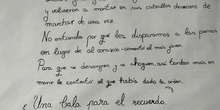 y volvieron a montar en sus caballos deseosos de
marchar de una vez.
No entiendo por qué los disparamos a las piernas
en lugar de al corazón - comentó el más joven
Para que se desangren y se ahoguen, así tardan más en
morir le contestó el que había dado la orden.
Una bala para el recuerdo